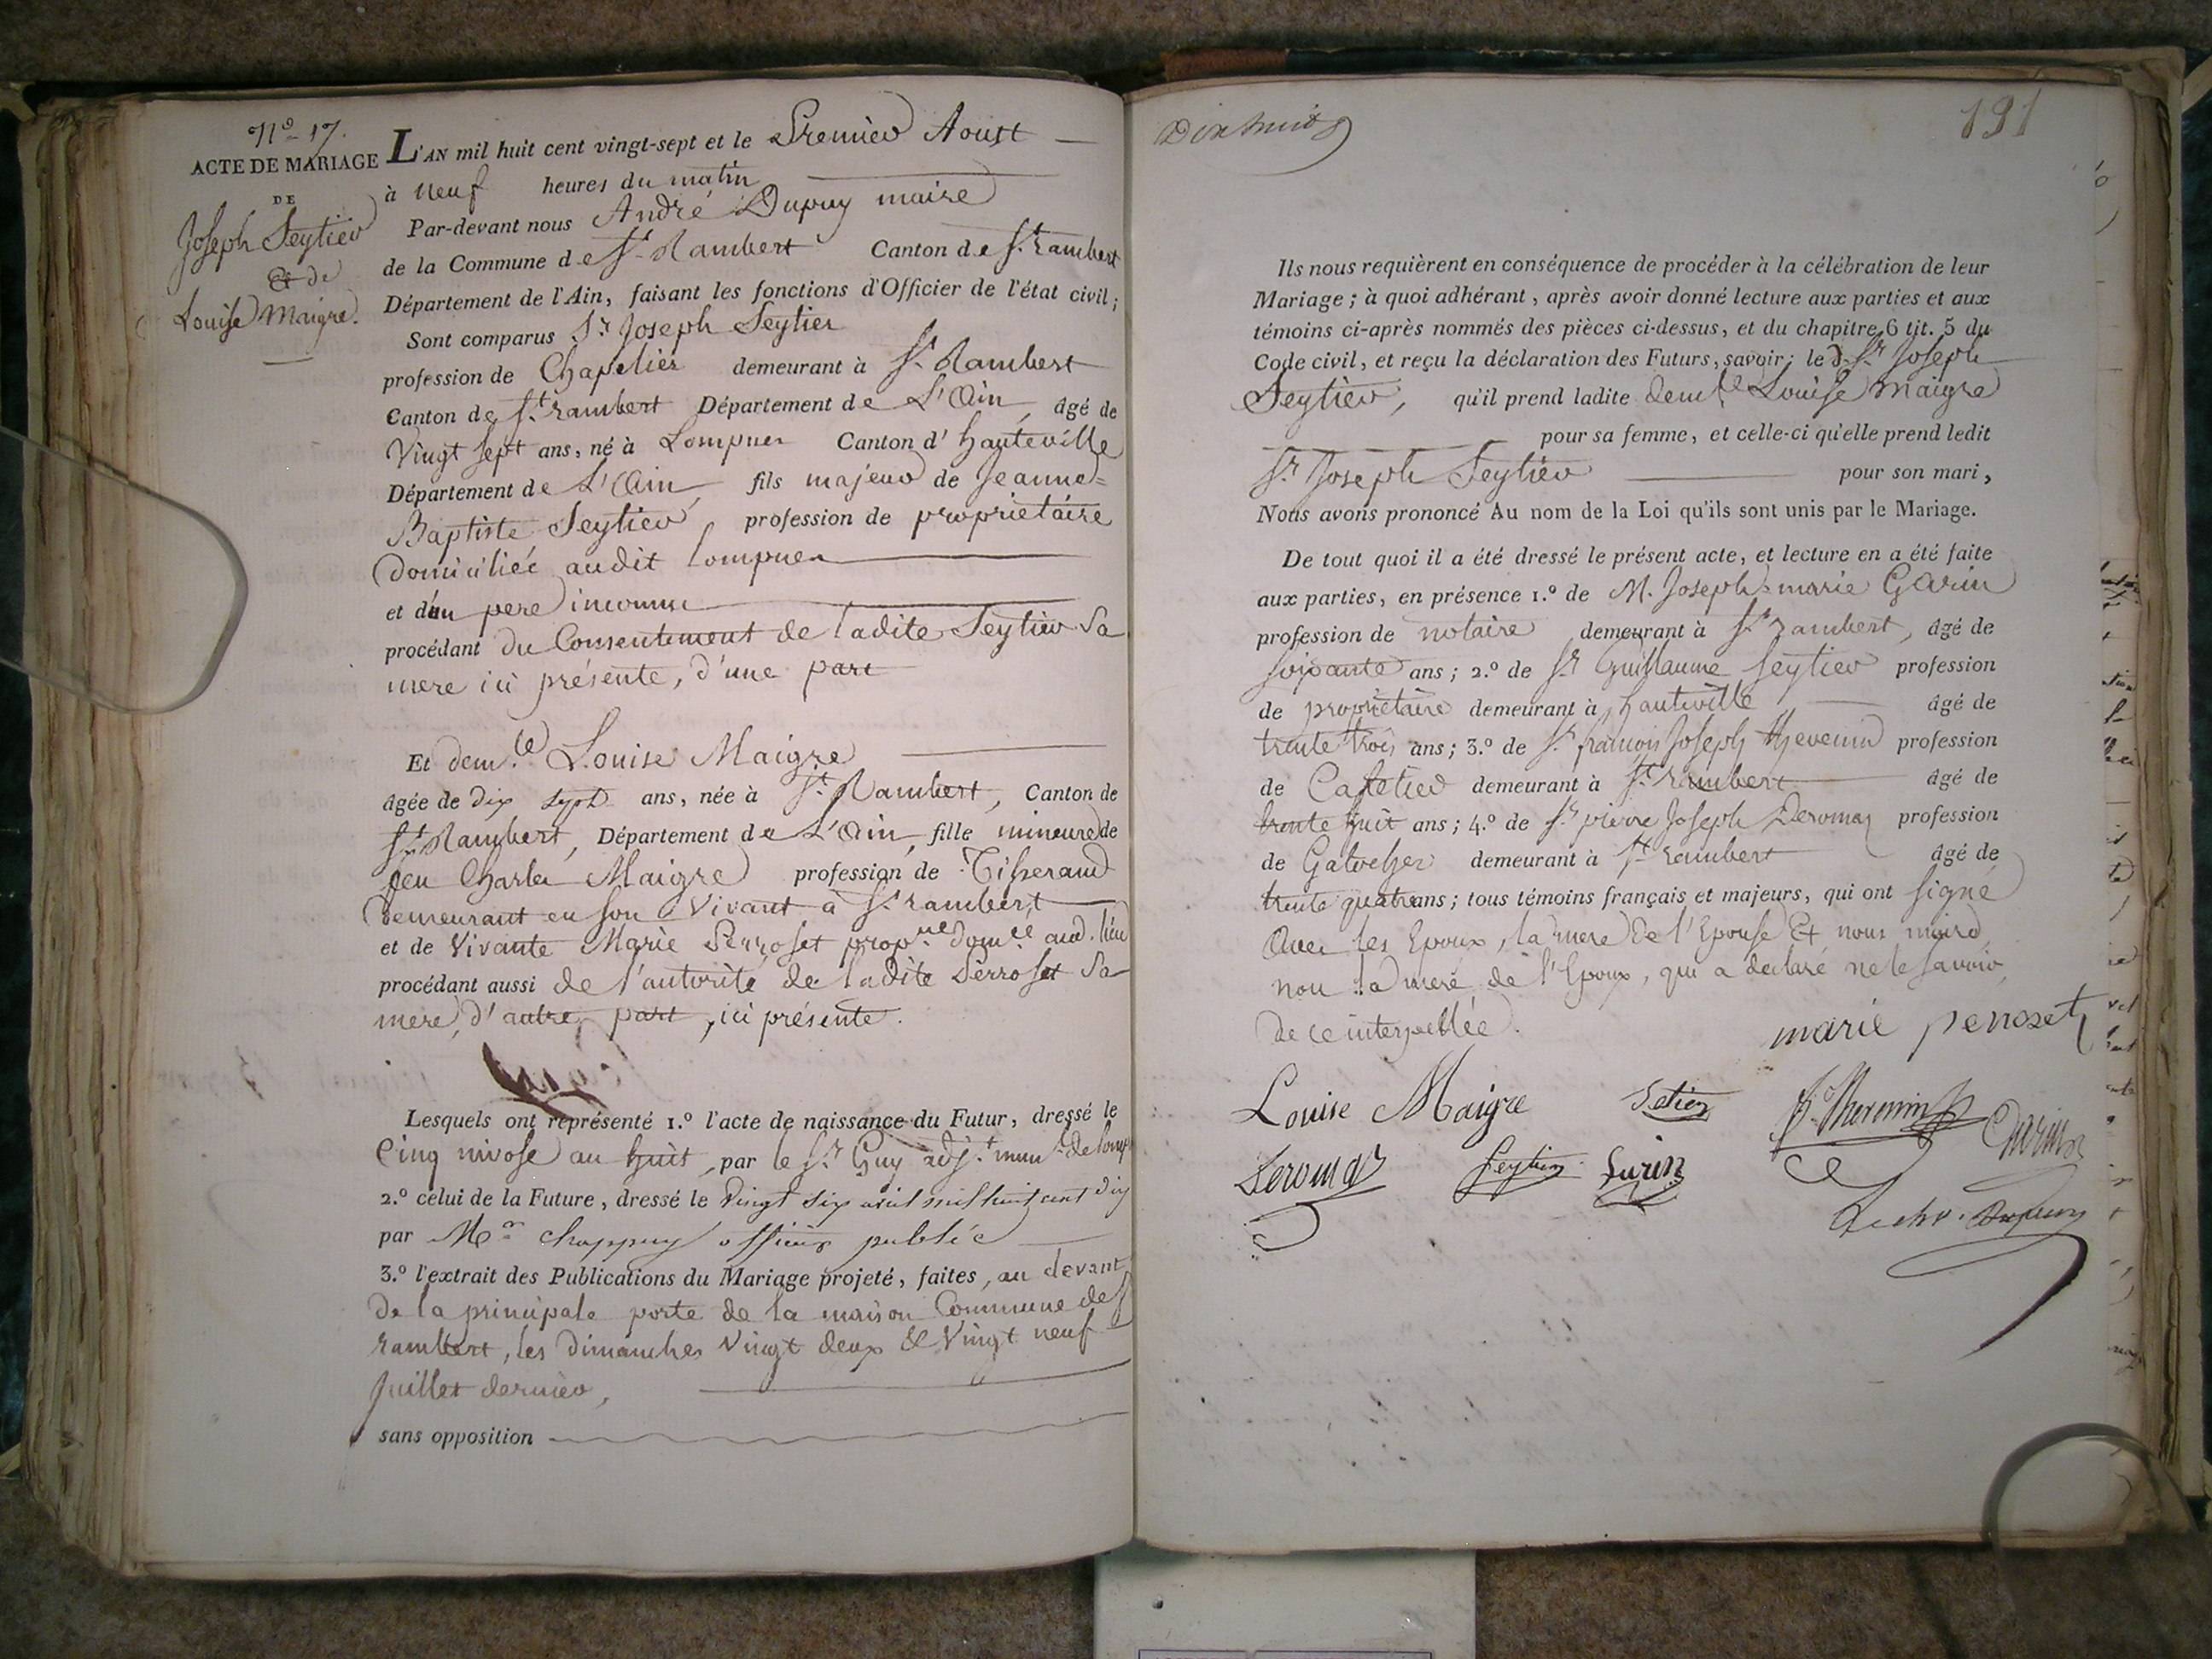 N.o 17.
ACTE DE MARIAGE
DE
Joseph Seytier
Et de
Louise Maigre.
L'AN mil huit cent vingt-sept et le Premier Aoust
à neuf heures du matin
Par-devant nous André Dupuy maire
de la Commune de St. Rambert Canton de St. rambert
Département de l'Ain, faisant les fonctions d'Officier de l'état civil;
Sont comparus Sr. Joseph Seytier
profession de Chapelier demeurant à St. Rambert
Canton de St. rambert Département de L'Ain, âgé de
Vingt sept ans, né à Lompnes Canton d'hauteville
Département de L'Ain, fils majeur de Jeanne=
Baptiste Seytier, profession de proprietaire
domiciliée audit Lompnes
et d'un pere inconnu
procédant du Consentement de ladite Seytier Sa
mere ici présente, d'une part
Et dem.le Louise Maigre
âgée de dix sept ans, née à St. Rambert, Canton de
St. Rambert, Département de L'Ain, fille mineure de
feu Charles Maigre profession de Tisserand
demeurant en son Vivant à St. rambert,
et de Vivante Marie Perroset prop.re dom.ée aud. lieu
procédant aussi de l'autorité de ladite Perroset Sa
mere, d'autre part, ici présente.
Lesquels ont représenté 1.o l'acte de naissance du Futur, dressé le
Cinq nivose an huit, par le Sr. Guy adj.t mun.l de Lomp.
2.o celui de la Future, dressé le Vingt six avril mil huit cent dix
par M.r chappuy officier public
3.o l'extrait des Publications du Mariage projeté, faites, au devant
de la principale porte de la maison Commune de St.
rambert, les dimanches Vingt deux & Vingt neuf
Juillet dernier,
sans opposition
Dix huit
191
Ils nous requièrent en conséquence de procéder à la célébration de leur
Mariage; à quoi adhérant, après avoir donné lecture aux parties et aux
témoins ci-après nommés des pièces ci-dessus, et du chapitre 6 tit. 5 du
Code civil, et reçu la déclaration des Futurs, savoir; le d. Sr. Joseph
Seytier, qu'il prend ladite dem.le Louise Maigre
pour sa femme, et celle-ci qu'elle prend ledit
Sr. Joseph Seytier pour son mari,
Nous avons prononcé Au nom de la Loi qu'ils sont unis par le Mariage.
De tout quoi il a été dressé le présent acte, et lecture en a été faite
aux parties, en présence 1.o de M. Joseph=marie Garin
profession de notaire demeurant à St. rambert, âgé de
soixante ans; 2.o de Sr. Guillaume Seytier profession
de propriétaire demeurant à hauteville âgé de
trente trois ans; 3.o de Sr. françois Joseph thevenin profession
de Cafetier demeurant à St. rambert âgé de
trente huit ans; 4.o de Sr. pierre Joseph Deromas profession
de demeurant à St. rambert âgé de
trente quatre ans; tous témoins français et majeurs, qui ont signé
Avec les Epoux, la mere de l'Epouse Et nous maire,
non la mere de l'Epoux, qui a declaré ne le savoir,
de ce interpellée.
marie peroset
Louise Maigre Setier Thevenin Garin
Deromas Seytier
Dupuy